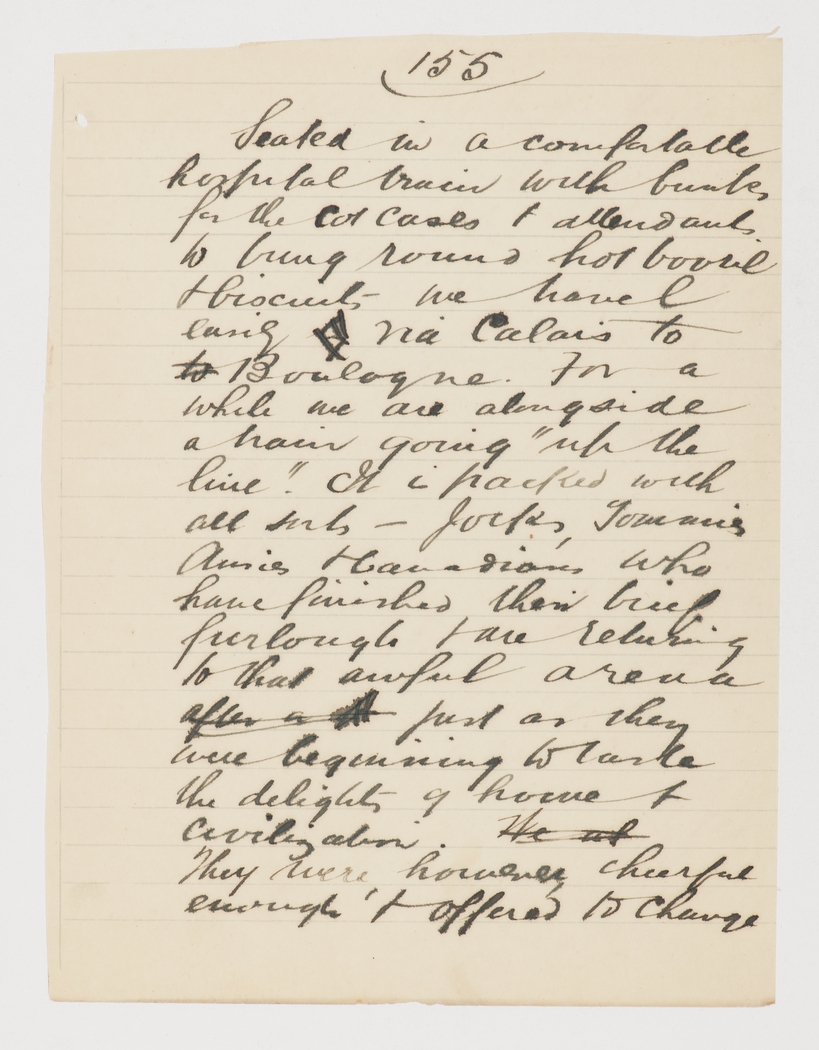 155
Seated in a comfortable
hospital train with bunks
for the cot cases & attendants
to bring round hot bovril
& biscuits we travel
easily via Calais to
to Boulogne. For a
while we are alongside
a train going "up the
line". It is packed with
all sorts - Jocks, Tommies
Ausies & Canadians who
have finished their brief
furlough & are returing
to that awful arena
after a just as they
were beginning to taste
the delights of home &
civilization. We
They were, however, cheerful
enough & offered to change